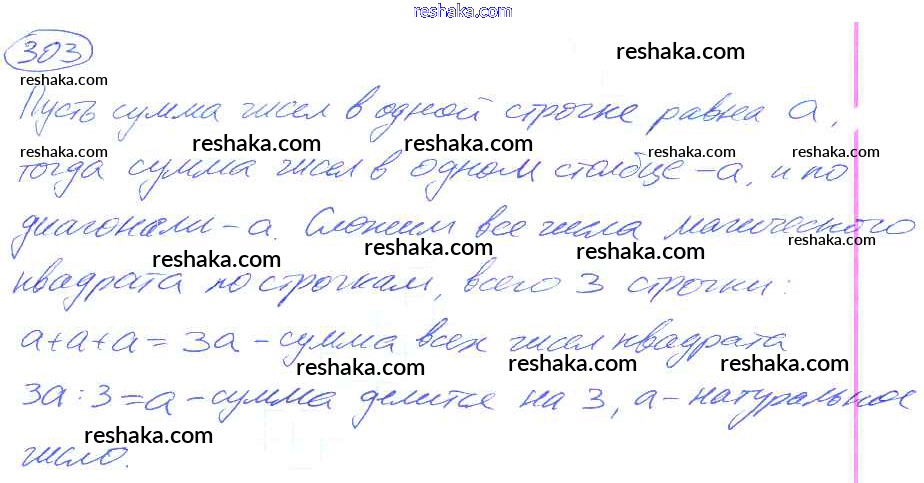 reshaka.com
303
reshaka.com
reshaka.com
Пусть сумма чисел в одной строчке равна a,
reshaka.com reshaka.com
reshaka.com reshaka.com reshaka.com
тогда сумма чисел в одном столбце - a, и по
диагонали - a. Сложим все числа магического
reshaka.com reshaka.com reshaka.com
квадрата по строчкам, всего 3 строчки:
a+a+a = 3a - сумма всех чисел квадрата
reshaka.com reshaka.com reshaka.com
3a : 3 = a - сумма делится на 3, a - натуральное
reshaka.com reshaka.com reshaka.com
число.